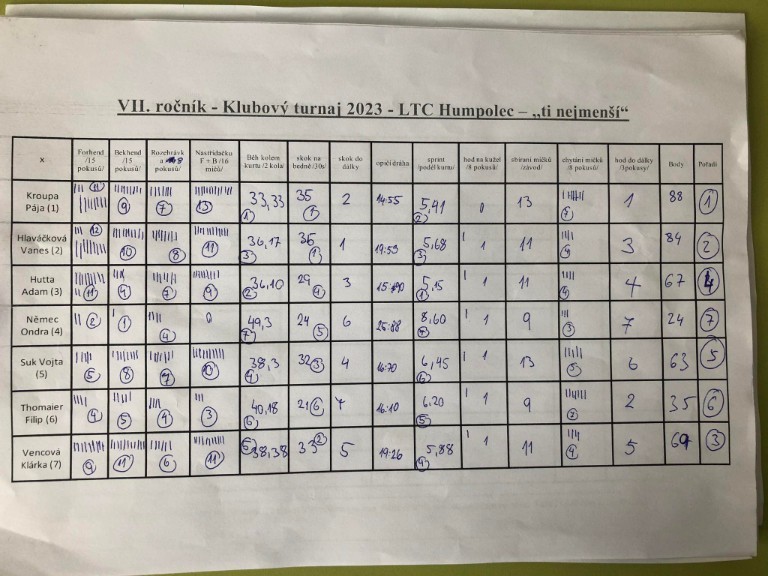 VII. ročník - Klubový turnaj 2023 - LTC Humpolec – „ti nejmenší“
x Forhend /15 pokusů/ Bekhend /15 pokusů/ Rozehrávka 8 pokusů/ Nastřidačku F + B /16 míčů/ Běh kolem kurtu /2 kola/ skok na bedně /30s/ skok do dálky opičí dráha sprint /podél kurtu/ hod na kužel /8 pokusů/ sbírání míčků /závod/ chytání míčků /8 pokusů/ hod do dálky /3pokusy/ Body Pořadí
Kroupa Pája (1) 11 9 7 13 33,33 1 35 1 2 14:55 5,41 2 0 13 1 88 1
Hlaváčková Vanes (2) 12 10 8 11 36,17 3 35 1 1 19:53 5,68 3 1 11 4 3 84 2
Hutta Adam (3) 11 4 7 9 36,10 2 29 4 3 5,15 1 1 11 4 4 67 4
Němec Ondra (4) 2 1 4 0 49,3 7 24 5 6 25:88 8,60 7 1 9 3 7 24 7
Suk Vojta (5) 5 8 7 10 38,3 4 32 3 4 16:70 6,45 6 1 13 5 6 63 5
Thomaier Filip (6) 4 5 4 3 40,18 6 21 6 7 16:10 6.20 5 1 9 2 35 6
Vencová Klárka (7) 9 11 6 11 38,38 5 33 2 5 19:26 5,88 4 1 11 4 5 69 3